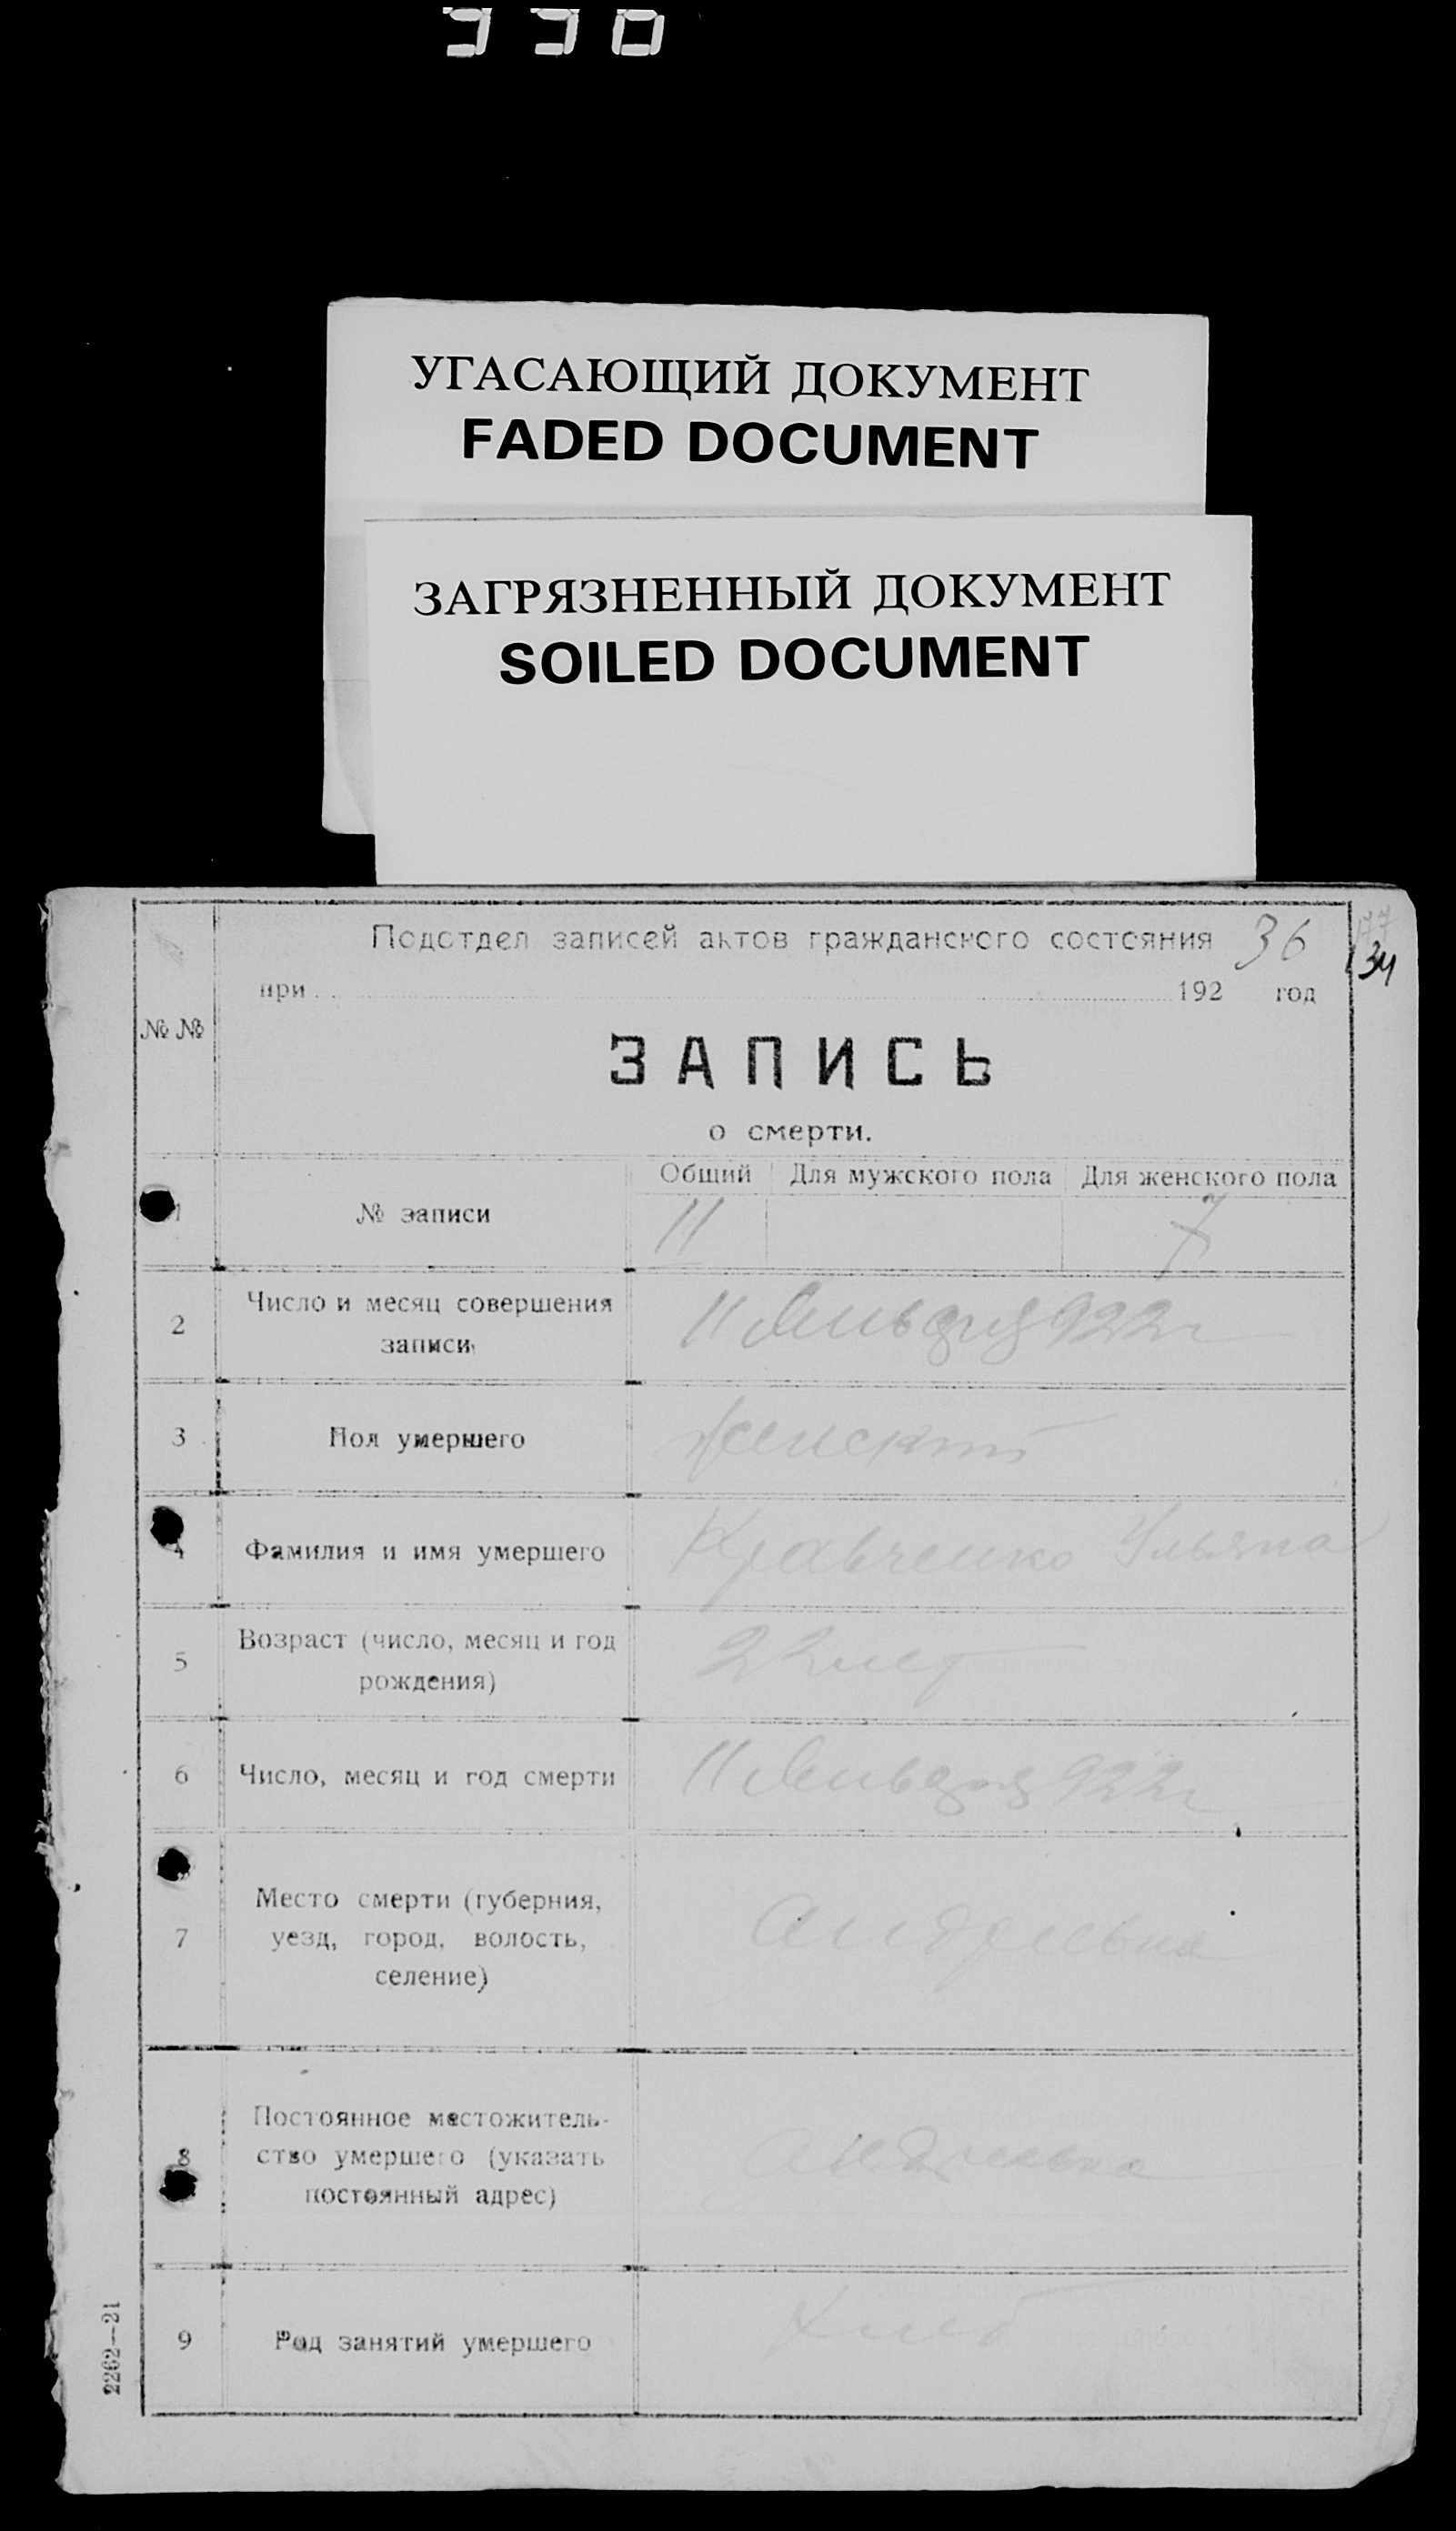 УГАСАЮЩИЙ ДОКУМЕНТ
FADED DOCUMENT
ЗАГРЯЗНЕННЫЙ ДОКУМЕНТ
SOILED DOCUMENT
Подотдел записей актов гражданского состояния 36
34
при 192 год
№ №
ЗАПИСЬ
о смерти.
Общий Для мужского пола Для женского пола
1 № записи 11 7
2 Число и месяц совершения
записи 11 Января 922 г
3 Пол умершего женский
4 Фамилия и имя умершего Кравченко Ульяна
5 Возраст (число, месяц и год
рождения) 22 лет
6 Число, месяц и год смерти 11 Января 922 г
7 Место смерти (губерния,
уезд, город, волость,
селение)
8 Постоянное местожитель-
ство умершего (указать
постоянный адрес)
9 Род занятий умершего
2262—21